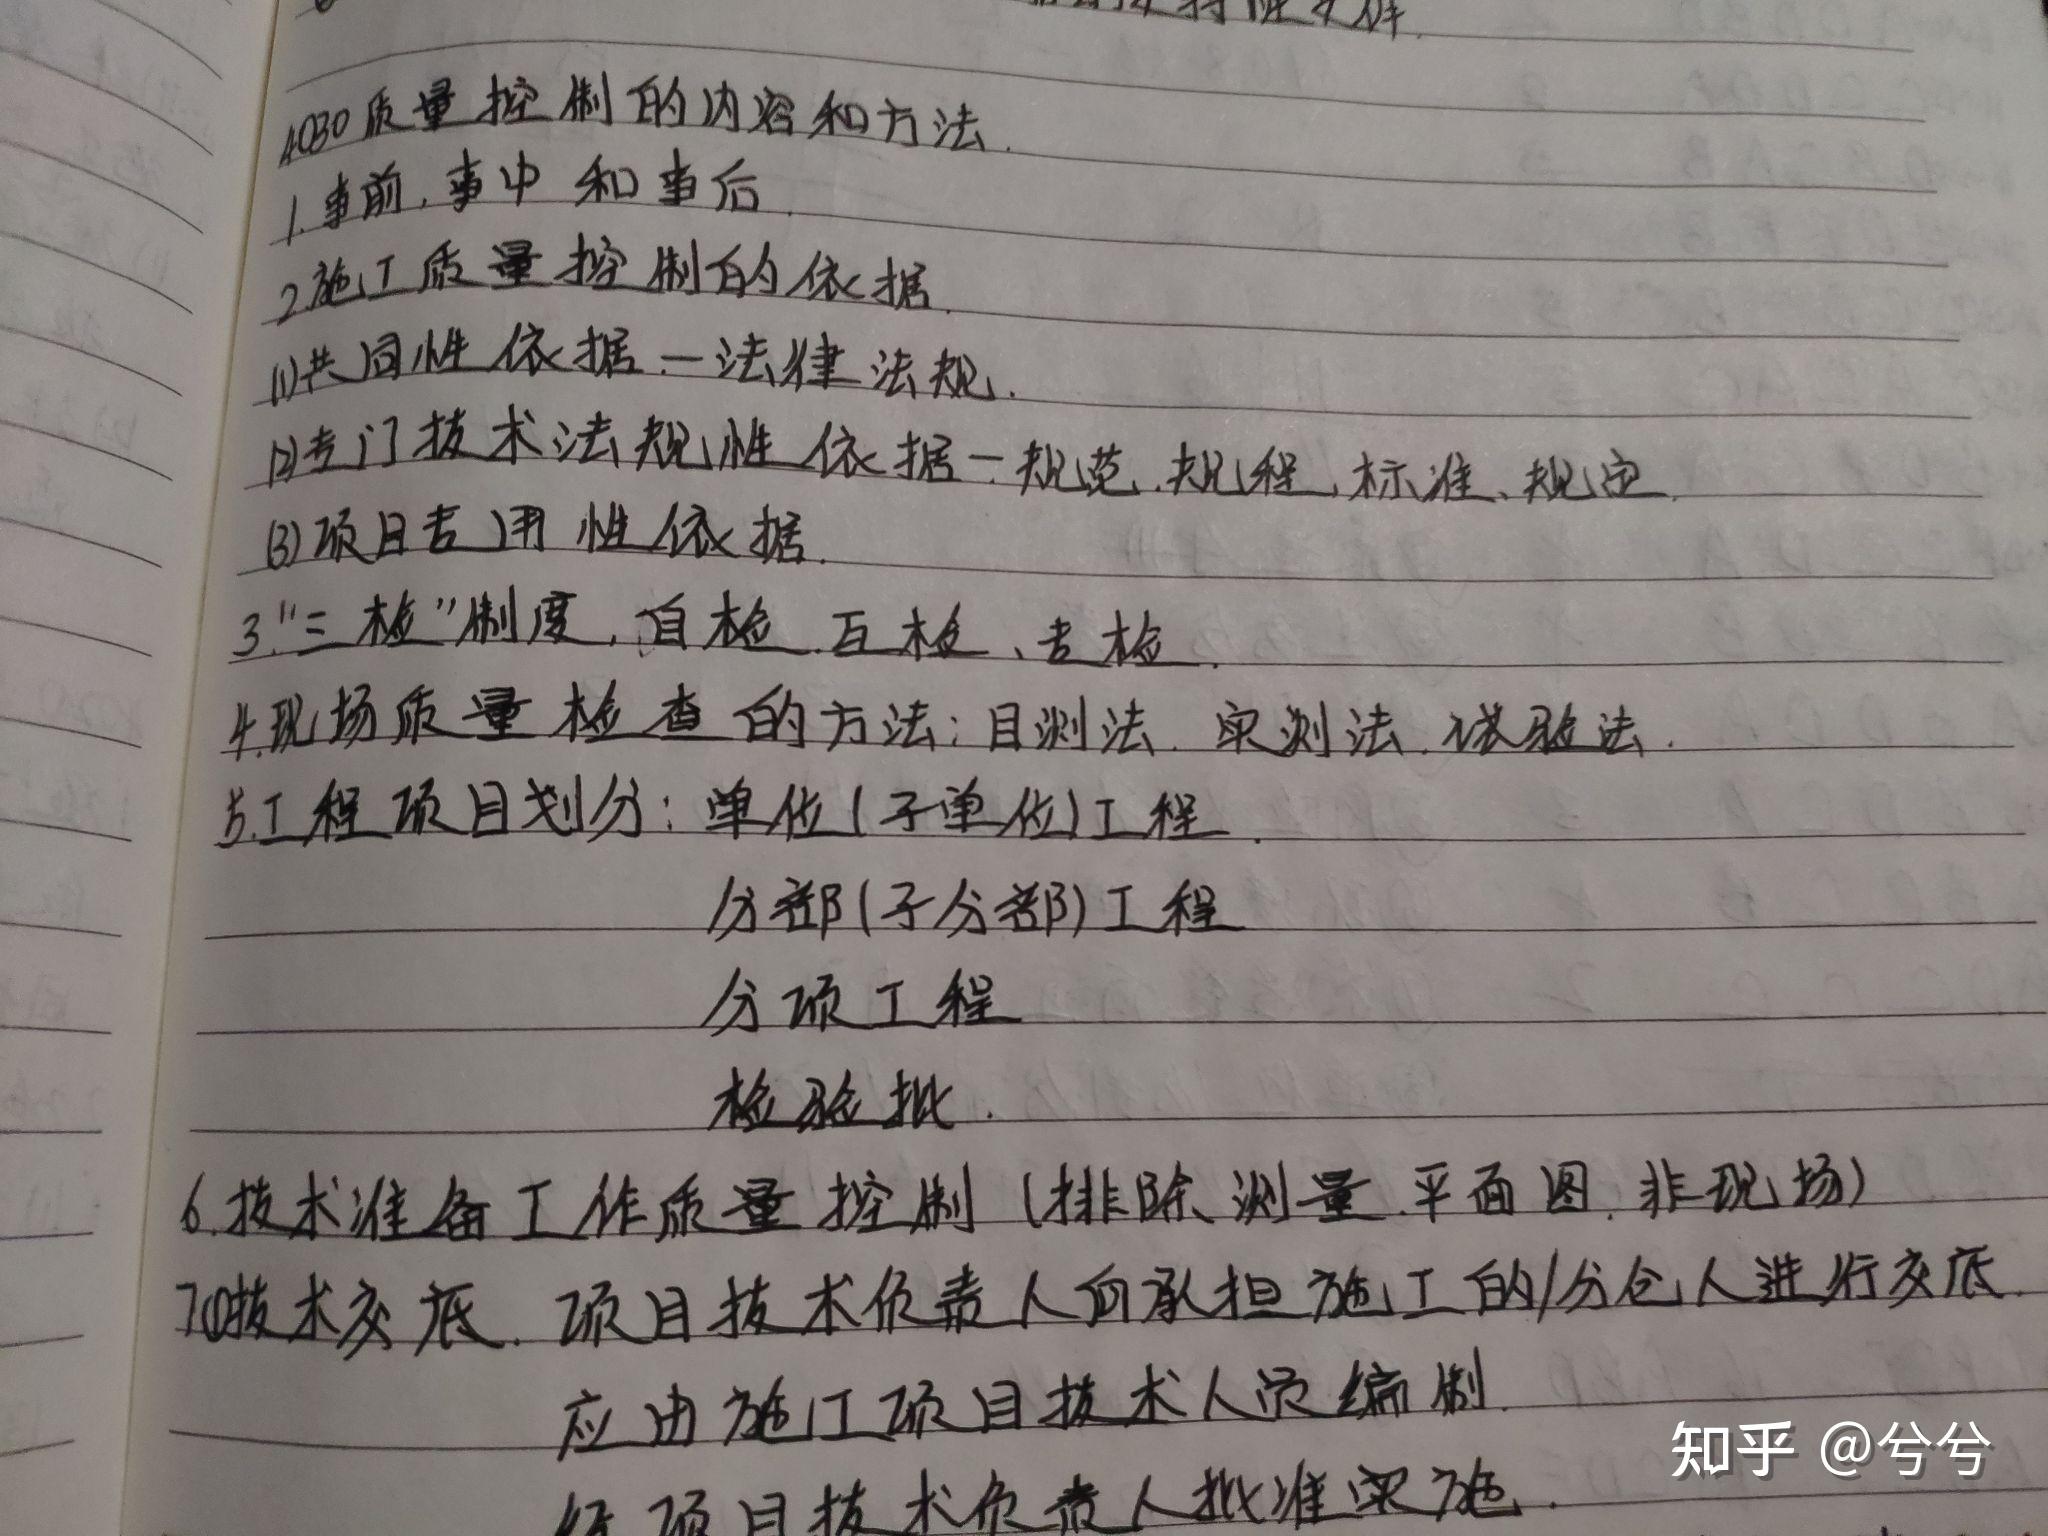 4030质量控制的内容和方法.
1.事前、事中和事后.
2.施工质量控制的依据.
(1)共同性依据—法律法规.
(2)专门技术法规性依据—规范、规程、标准、规定.
(3)项目专用性依据.
3."三检"制度,自检、互检、专检.
4.现场质量检查的方法:目测法、实测法、试验法.
5.工程项目划分:单位(子单位)工程.
分部(子分部)工程
分项工程
检验批.
6.技术准备工作质量控制(排除测量、平面图、非现场)
7.(1)技术交底.项目技术负责人向承担施工的/分包人进行交底.
应由施工项目技术人员编制.
经项目技术负责人批准实施.
知乎 @兮兮